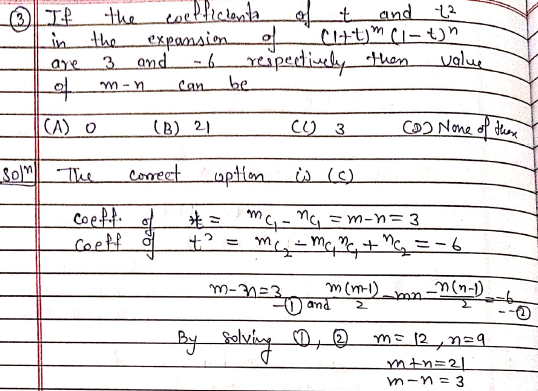 ③ If the coefficients of t and t²
in the expansion of (1+t)ᵐ (1-t)ⁿ
are 3 and -6 respectively then value
of m-n can be
(A) 0 (B) 21 (C) 3 (D) None of these
Solⁿ The correct option is (C)
coeff. of t = ᵐC₁ - ⁿC₁ = m-n = 3
coeff of t² = ᵐC₂ - ᵐC₁ ⁿC₁ + ⁿC₂ = -6
m-n=3 -① and m(m-1)/2 - mn - n(n-1)/2 = -6 --②
By solving ①, ② m = 12, n=9
m+n=21
m-n = 3